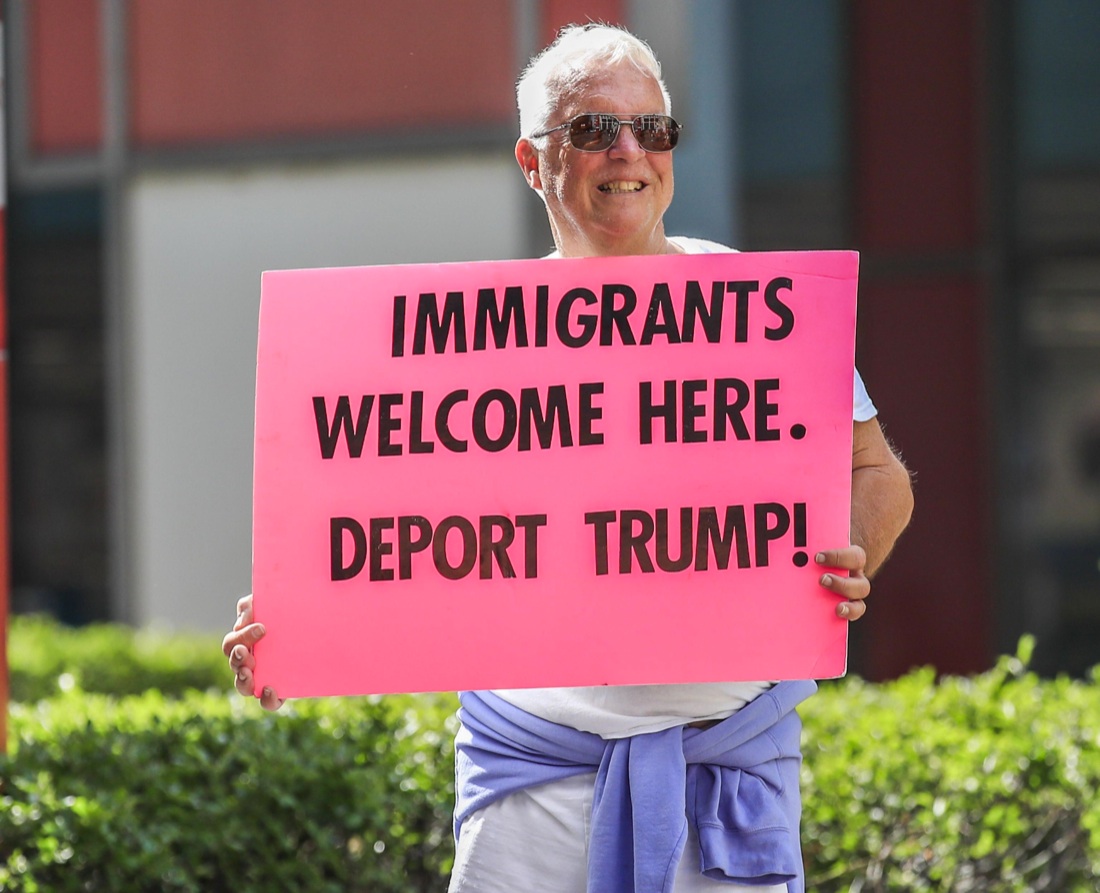 IMMIGRANTS
WELCOME HERE.
DEPORT TRUMP!